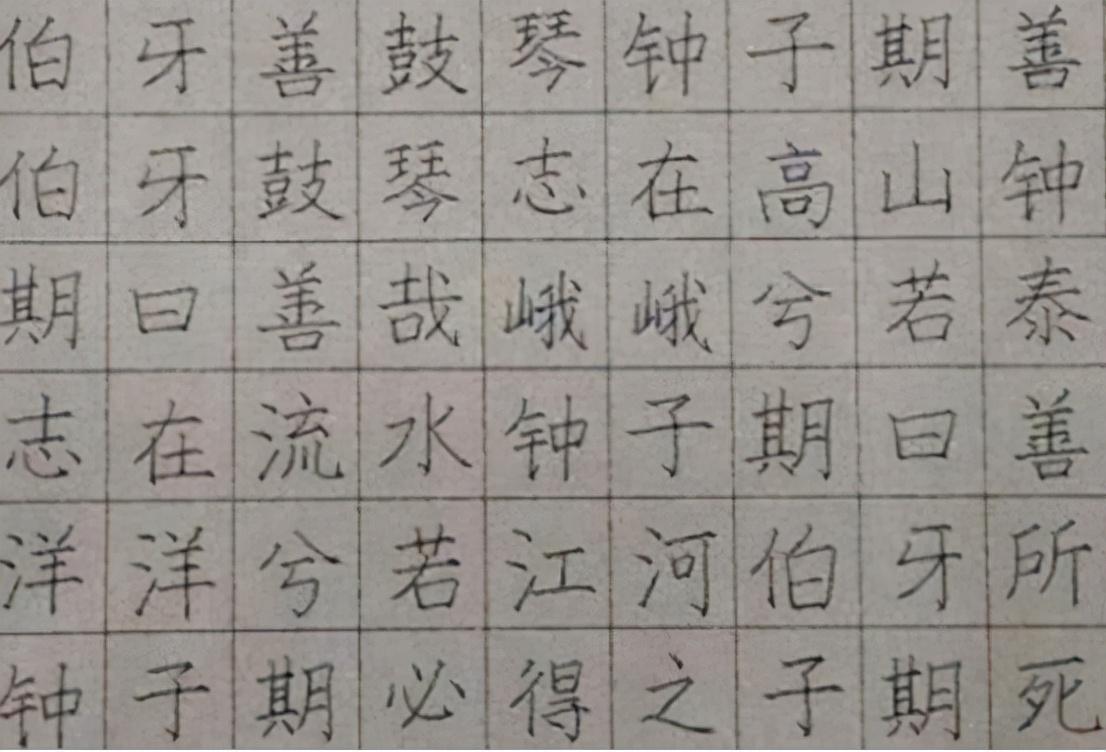 伯牙善鼓琴钟子期善
伯牙鼓琴志在高山钟
期曰善哉峨峨兮若泰
志在流水钟子期曰善
洋洋兮若江河伯牙所
钟子期必得之子期死